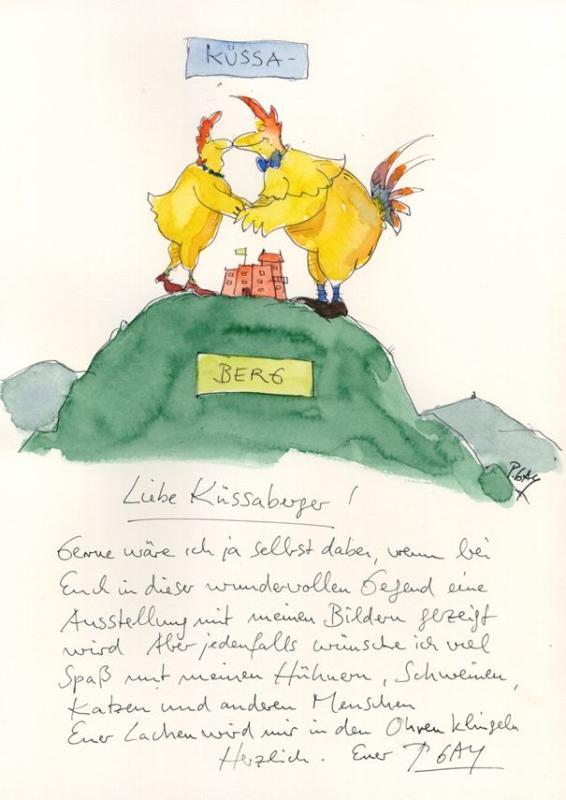 KÜSSA-
BERG
P. GAY
Liebe Küssaberger!
Gerne wäre ich ja selbst dabei, wenn bei
Euch in dieser wundervollen Gegend eine
Ausstellung mit meinen Bildern gezeigt
wird Aber jedenfalls wünsche ich viel
Spaß mit meinen Hühnern, Schweinen,
Katzen und anderen Menschen
Euer Lachen wird mir in den Ohren klingeln
Herzlich. Euer P. GAY